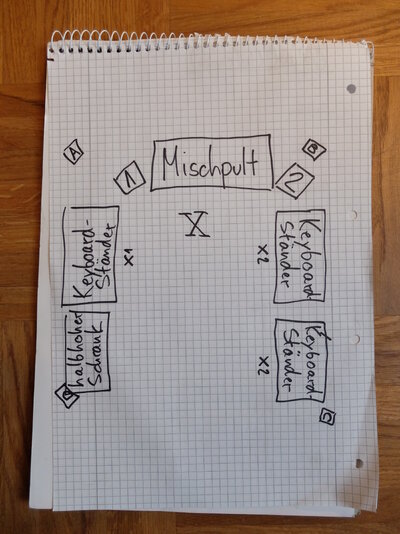 A
B
1
Mischpult
2
X
Keyboard-
Ständer
x1
Keyboard-
Ständer
x2
halbhoher
Schrank
Keyboard-
Ständer
x2
C